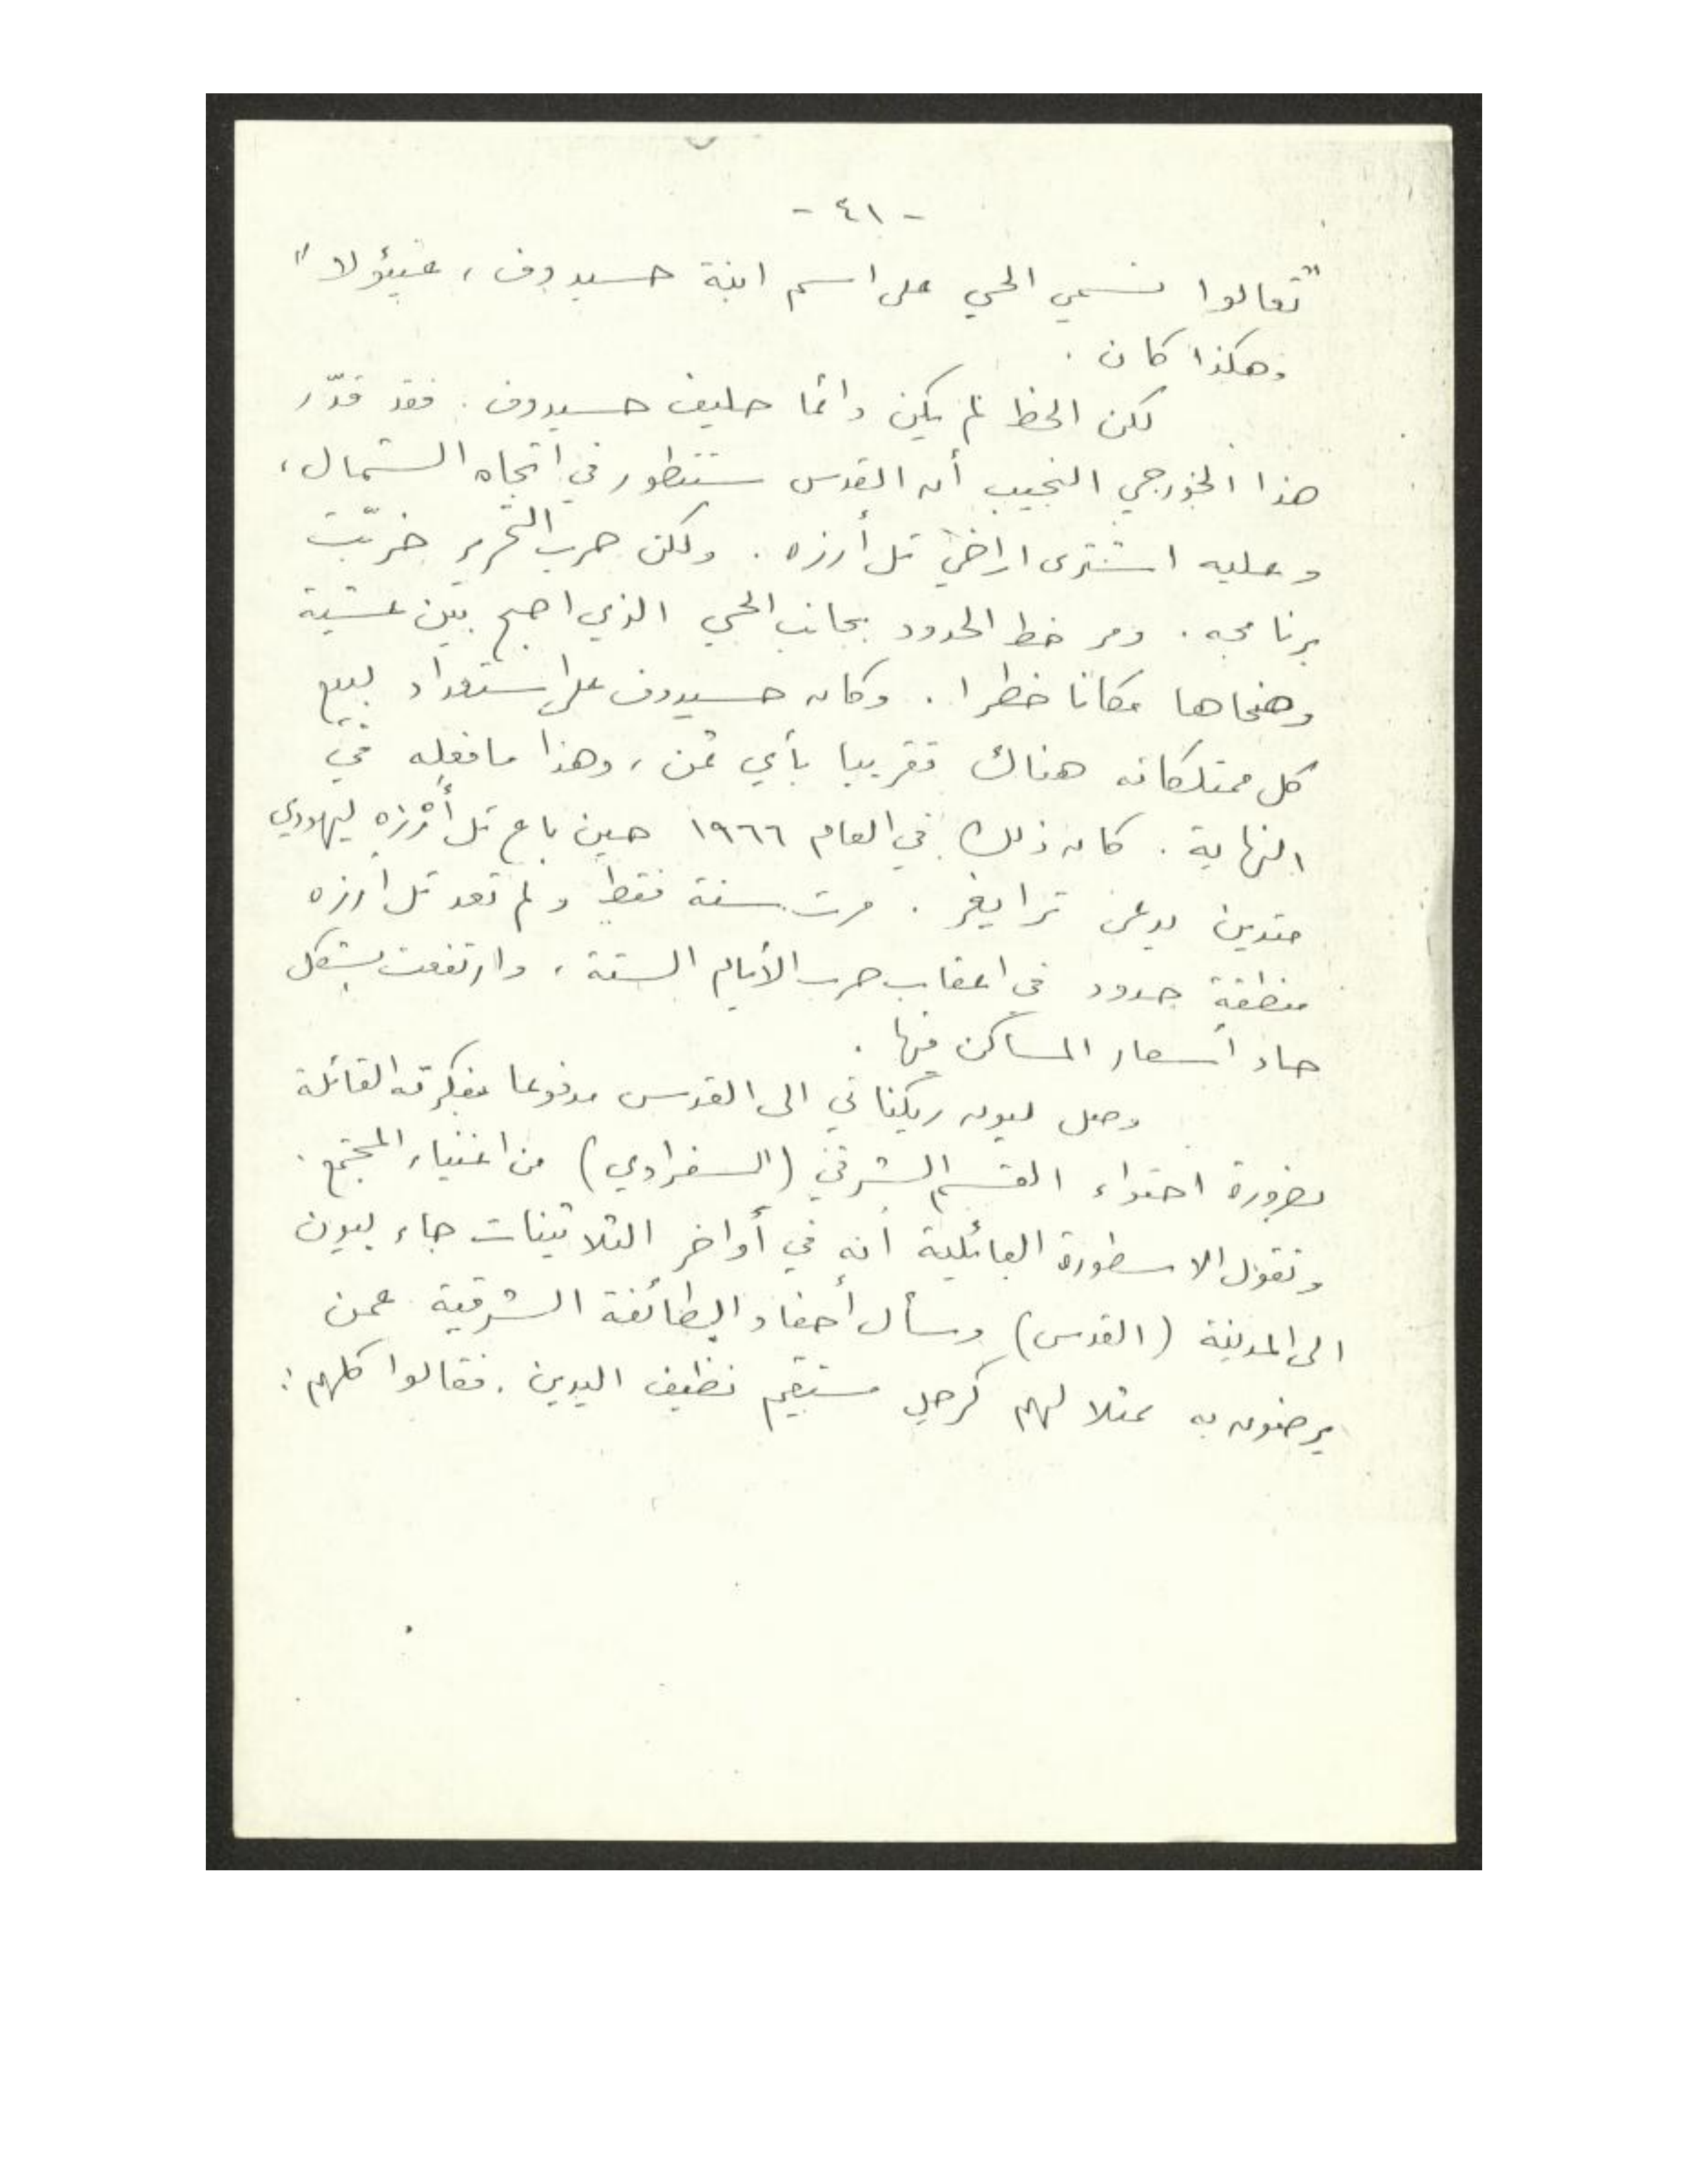 - ٤١ -
"تعالوا نسمي الحي على اسم ابنة حسيدوف، غيئولا"
وهكذا كان .
لكن الحظ لم يكن دائما حليف حسيدوف. فقد قدّر
هذا الخورجي النجيب أن القدس ستتطور في اتجاه الشمال،
وعليه اشترى اراضي تل أرزه . ولكن حرب التحرير خربّت
برنامجه . ومر خط الحدود بجانب الحي الذي اصبح بين عشية
وضحاها مكانا خطرا . وكان حسيدوف على استعداد لبيع
كل ممتلكاته هناك تقريبا بأي ثمن، وهذا ما فعله في
النهاية . كان ذلك في العام ١٩٦٦ حين باع تل أرزه ليهودي
متدين يدعى ترايغر . مرت سنة فقط ولم تعد تل أرزه
منطقة حدود في اعقاب حرب الأيام الستة، وارتفعت بشكل
حاد أسعار المساكن فيها .
وصل ليون ريكناتي الى القدس مدفوعا بفكرته القائلة
بضرورة احتواء القسم الشرقي (السفرادي) من اغنياء المجتمع .
وتقول الاسطورة العائلية أنه في أواخر الثلاثينات جاء ليون
الى المدينة (القدس) وسأل أحفاد الطائفة الشرقية عمن
يرضون به ممثلا لهم كرجل مستقيم نظيف اليدين . فقالوا كلهم :